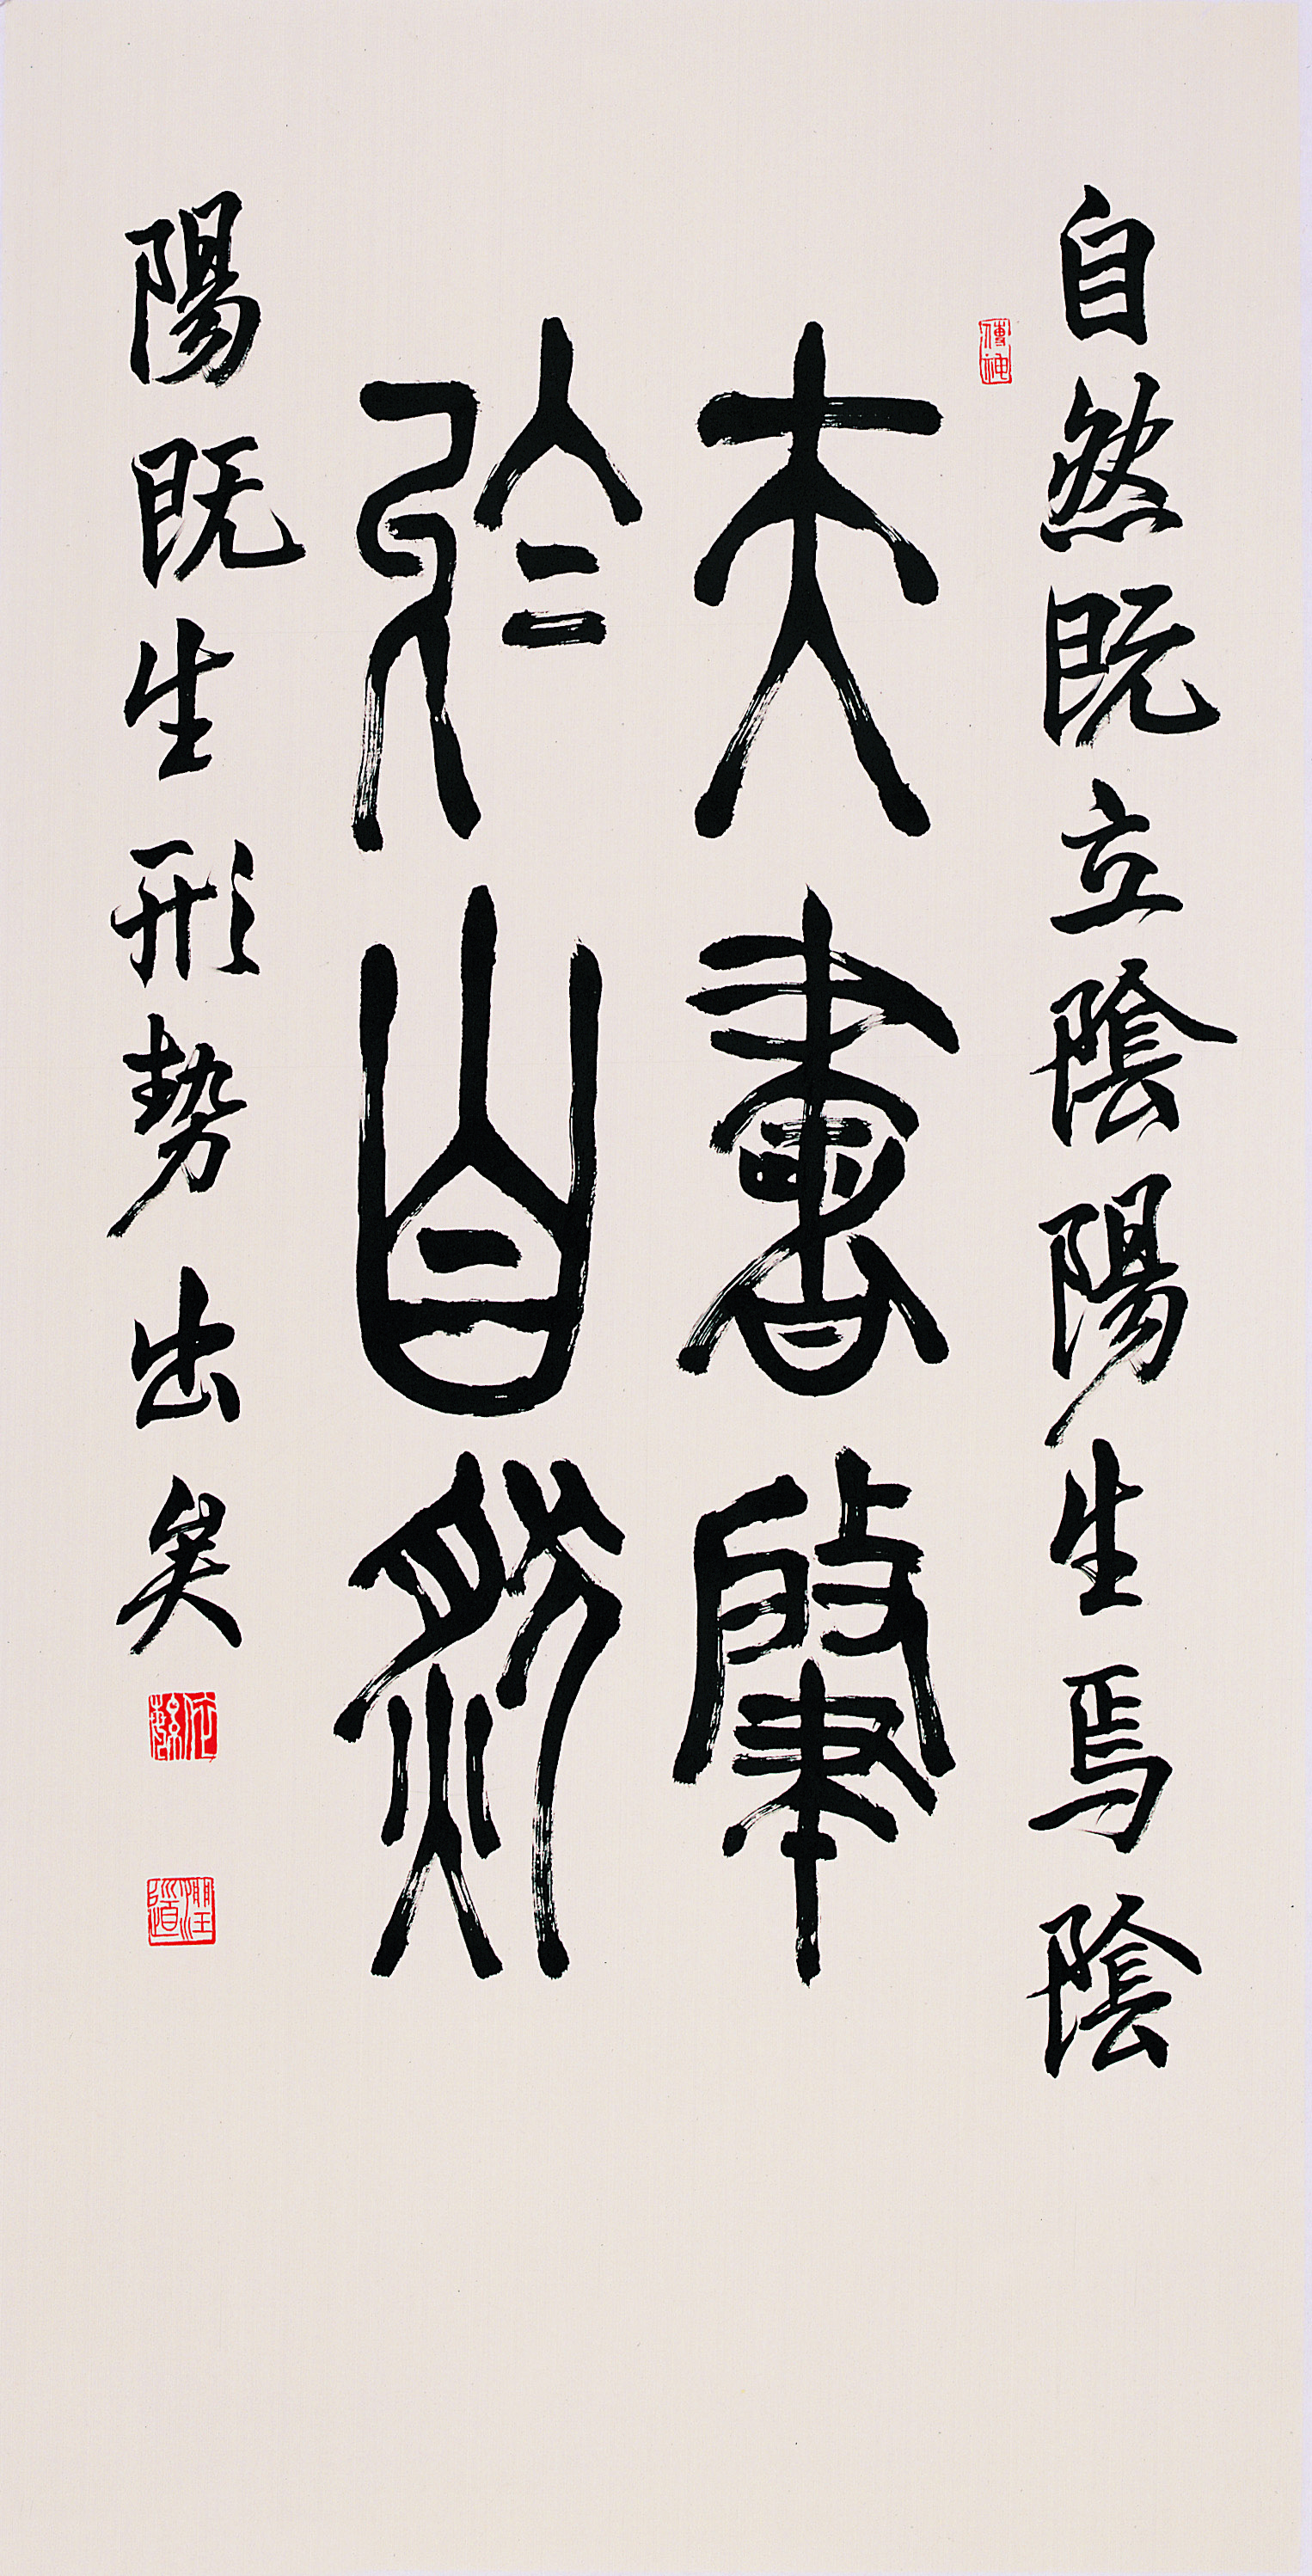 自然既立陰陽生焉陰
夫書肇
於自然
陽既生形勢出矣
傳神